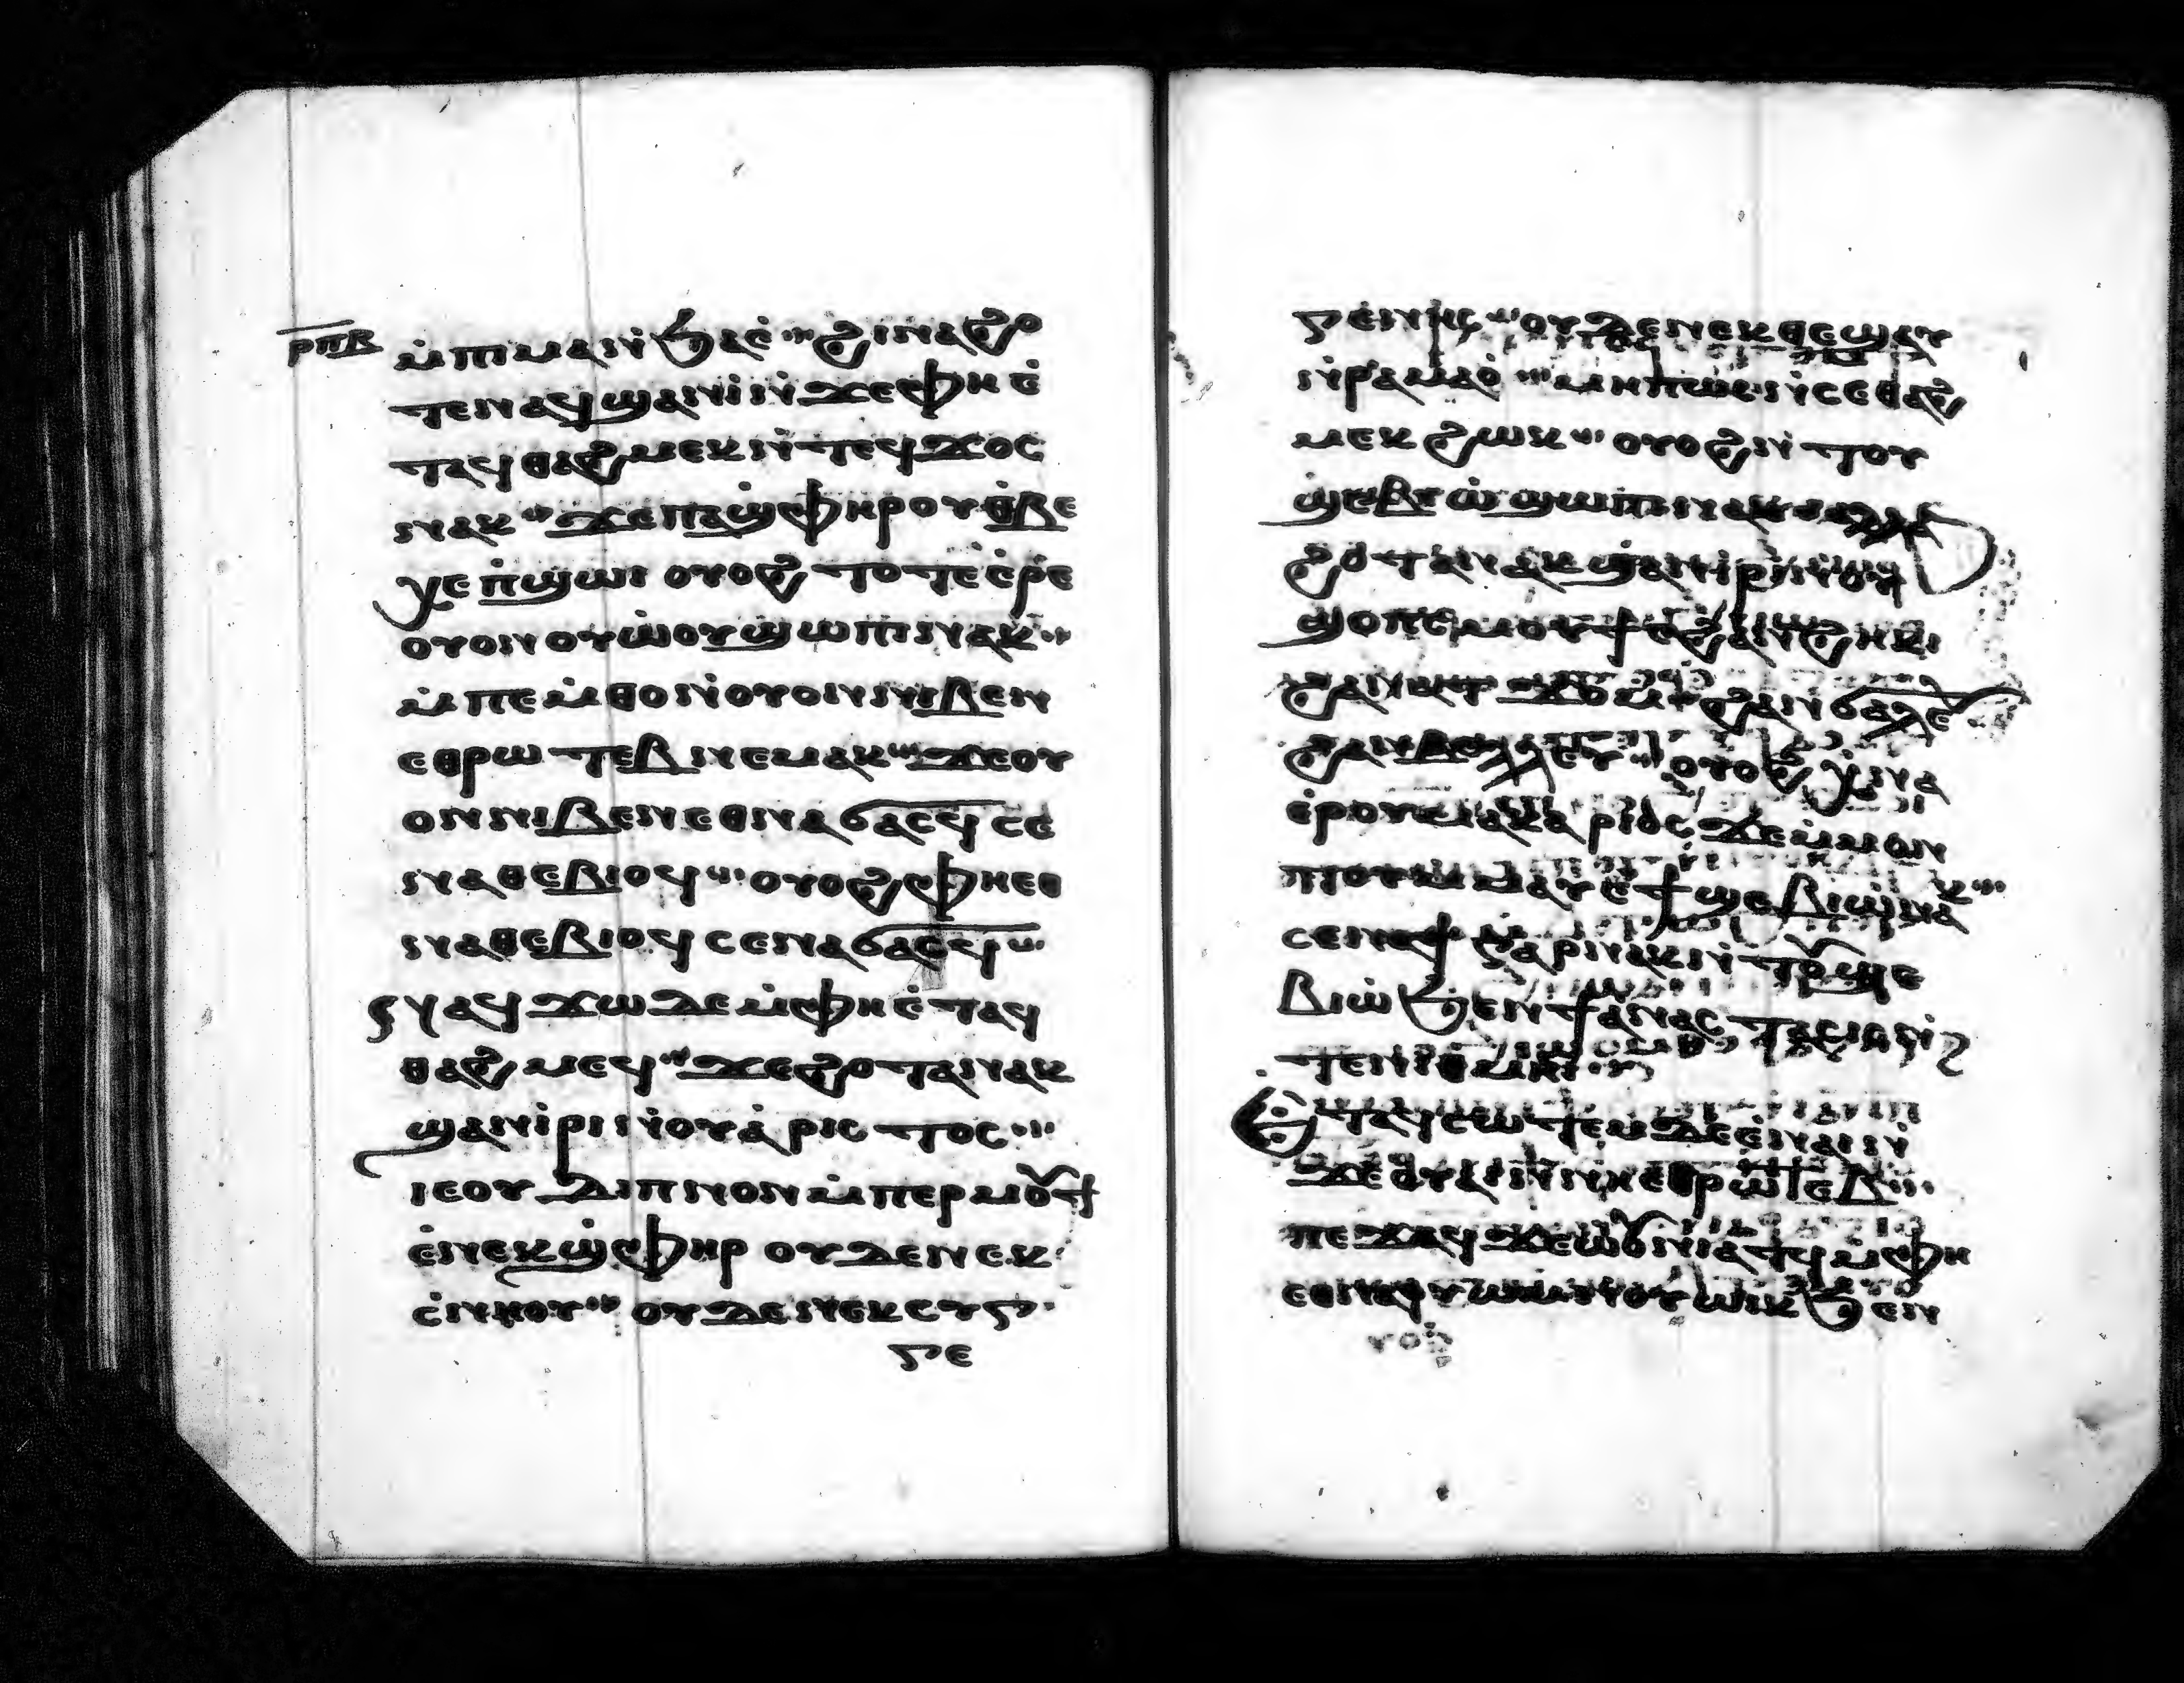 ⲣⲡⲃ
ⲙ̇ⲡⲓⲙⲁⲛ̇ϧⲁⲉ̇ ϩⲓⲛⲁϩⲟ
ⲧⲉⲛⲁϥϣⲁⲛⲓ̇ⲛ̇ϫⲉⲫⲏⲉ̇
ⲧⲁϥⲑⲁϩⲙⲉⲕⲛ̇ⲧⲉϥϫⲟⲥ
ⲛⲁⲕ ϫⲉⲡⲁϣ̇ⲫⲏⲣⲟⲩⲑ̇ⲃⲉ
ⲭⲉⲡ̇ϣⲱⲓ ⲟⲩⲟϩ ⲧⲟⲧⲉⲉ̇ⲣⲉ
ⲟⲩⲟⲛⲟⲩⲱ̇ⲟⲩϣⲱⲡⲓⲛⲁⲕ
ⲙ̇ⲡⲉⲙ̇ⲑⲟⲛ̇ⲟⲩⲟⲛⲛⲓⲃⲉⲛ
ⲉⲑⲣⲱⲧⲉⲃⲛⲉⲙⲁⲕ ϫⲉⲟⲩ
ⲟⲛⲛⲓⲃⲉⲛⲉⲑⲛⲁϭⲁⲥϥⲥⲉ
ⲛⲁⲑⲉⲃⲓⲟϥ ⲟⲩⲟϩⲫⲏⲉⲑ
ⲛⲁⲑⲉⲃⲓⲟϥⲥⲉⲛⲁϭⲁⲥϥ
ⲛⲁϥϫⲱⲇⲉⲙ̇ⲫⲏⲉ̇ⲧⲁϥ
ⲑⲁϩⲙⲉϥ ϫⲉϩⲟⲧⲁⲛⲁⲕ
ϣⲁⲛⲓ̇ⲣⲓⲛ̇ⲟⲩⲁ̇ⲣⲓⲥⲧⲟⲥ
ⲓⲉⲟⲩⲇⲓⲡⲛⲟⲛⲙ̇ⲡⲉⲣⲙⲟⲩϯ
ⲉ̇ⲛⲉⲕϣ̇ⲫⲏⲣ ⲟⲩⲇⲉⲛⲉⲕ
ⲥ̇ⲛⲏⲟⲩ ⲟⲩⲇⲉⲛⲉⲕⲥⲩⲅ
ⲅⲉ
ⲅⲉⲛⲏⲥ ⲟⲩⲇⲉⲛⲉⲕⲑⲉϣⲁⲩ
ⲛ̇ⲣⲁⲙⲁⲟ̇ ⲙⲏⲡⲱⲥⲛ̇ⲥⲉⲑⲁϩ
ⲙⲉⲕϩⲱⲕ ⲟⲩⲟϩⲛ̇ⲧⲟⲩ
ϣⲉⲃⲓⲱ̇ϣⲱⲡⲓⲛⲁⲕ ⲁⲗⲗⲁ
ϩⲟⲧⲁⲛⲁⲕϣⲁⲛⲓ̇ⲣⲓⲛ̇ⲟⲩ
ϣⲟⲡⲥ ⲙⲟⲩϯⲉ̇ϩⲁⲛϩⲏⲕⲓ
ϩⲁⲛⲁⲧ ϫⲟⲙ ϩⲁⲛϭⲁⲗⲉ
ϩⲁⲛⲃⲉⲗⲗⲉⲩ ⲟⲩⲟϩ ⲭ̇ⲛⲁ
ⲉ̇ⲣⲟⲩⲙⲁⲕⲁⲣⲓⲟⲥ ϫⲉⲙ̇ⲙⲟⲛ
ⲛ̇ⲧⲱⲟⲩⲙ̇ⲙⲁⲩⲉ̇ϯϣⲉⲃⲓⲱ̇ⲛⲁⲕ
ⲥⲉⲛⲁϯⲅⲁⲣⲛⲁⲕⲛ̇ⲧⲟⲩϣⲉ
ⲃⲓⲱ̇ϧⲉⲛϯⲁ̇ⲛⲁⲥⲧⲁⲥⲓⲥⲛ̇
ⲧⲉⲛⲓⲑⲙⲏⲓ
ⲉ̇ⲧⲁϥⲥⲱⲧⲉⲙⲇⲉⲉ̇ⲛⲁⲓⲛ̇
ϫⲉⲟⲩⲁⲓⲛ̇ⲛⲏⲉⲑⲣⲱⲧⲉⲃ
ⲡⲉϫⲁϥϫⲉⲱⲟⲩⲛⲓⲁⲧϥⲙ̇ⲫⲏ
ⲉⲑⲛⲁⲟⲩⲱⲙⲛ̇ⲟⲩⲱⲓⲕϧⲉⲛ